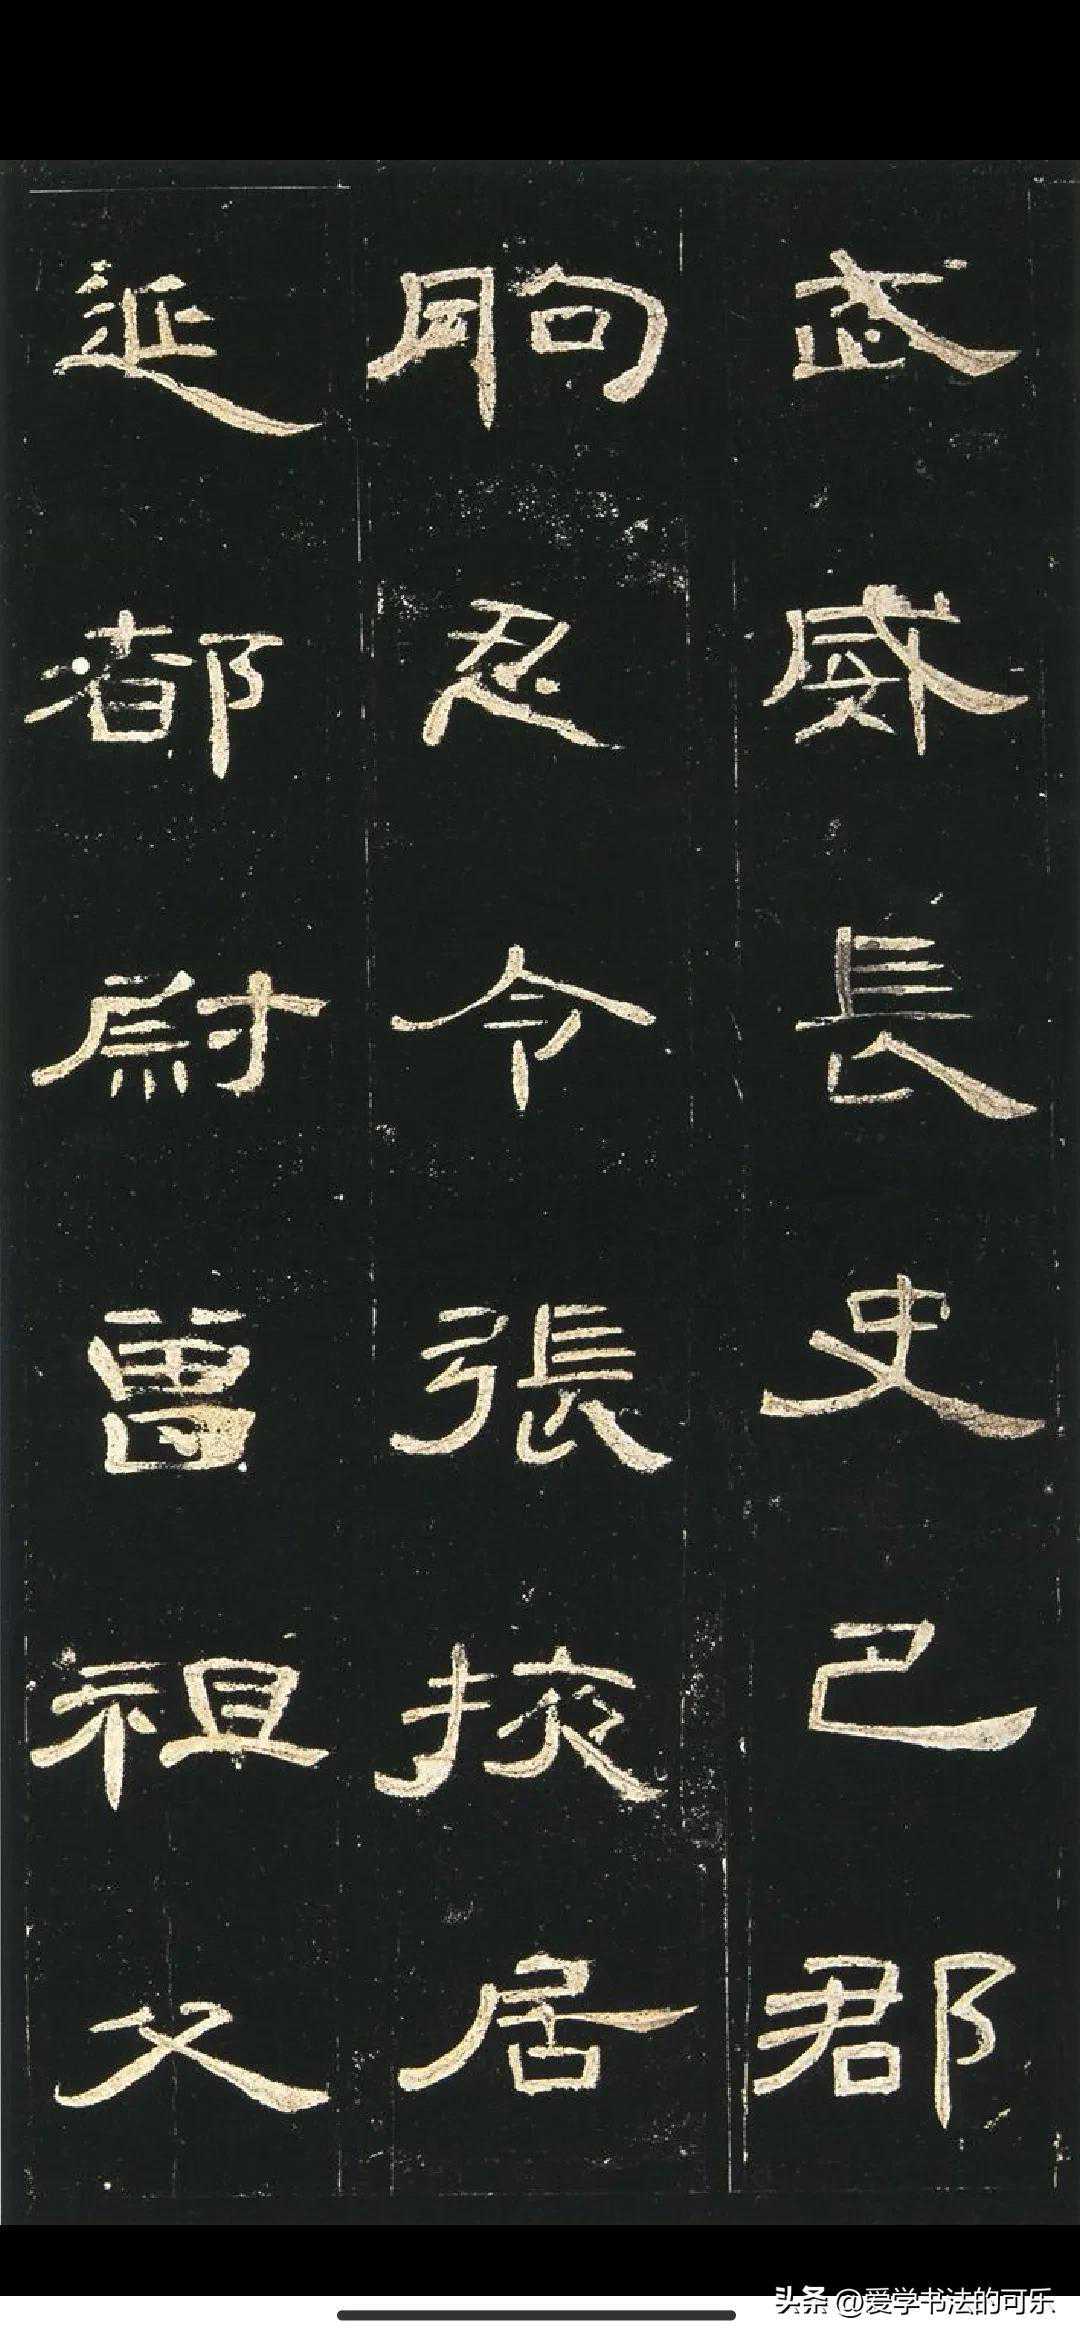 武威長史巴郡
朐忍令張掖居
延都尉曾祖父
头条 @爱学书法的可乐